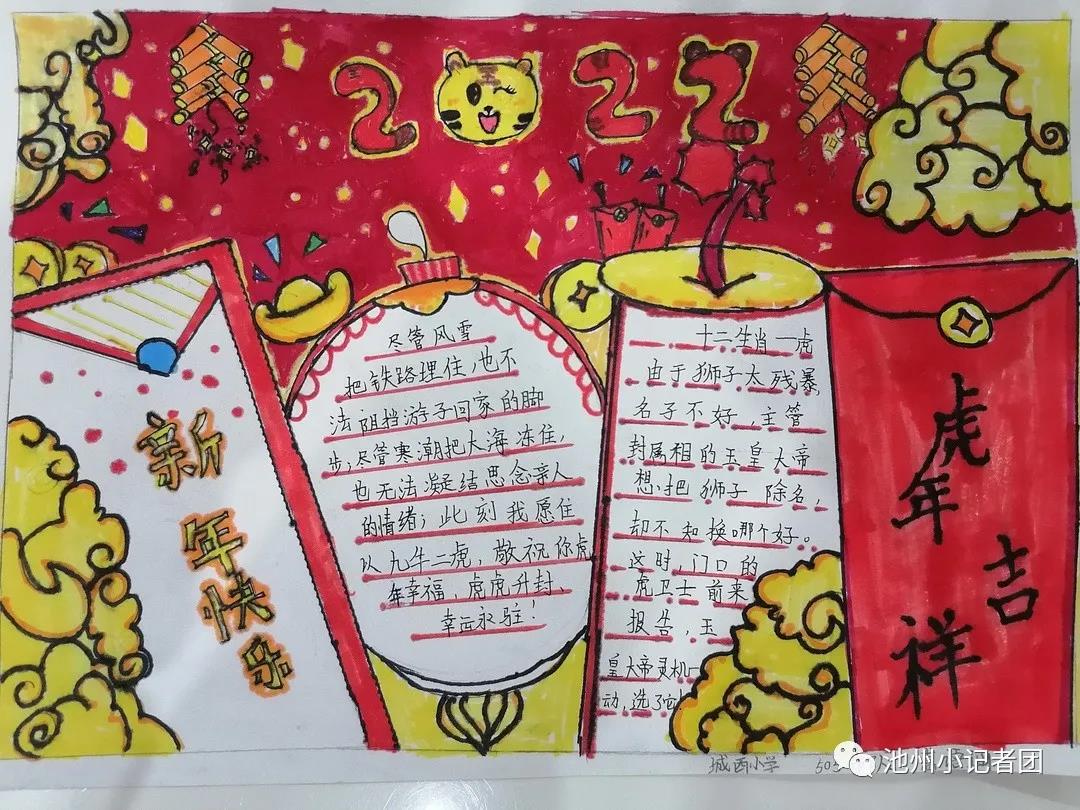 2022
新
年
快
乐
尽管风雪
把铁路埋住,也不
法阻挡游子回家的脚
步;尽管寒潮把大海冻住,
也无法凝结思念亲人
的情绪;此刻我愿住
以九牛二虎,敬祝你虎
年幸福,虎虎升封、
幸运永驻!
十二生肖—虎
由于狮子太残暴
名子不好,主管
封属相的玉皇大帝
想把狮子除名,
却不知换哪个好。
这时,门口的
虎卫士前来
报告,玉
皇大帝灵机一
动,选了它!
虎
年
吉
祥
城西小学 505
池州小记者团